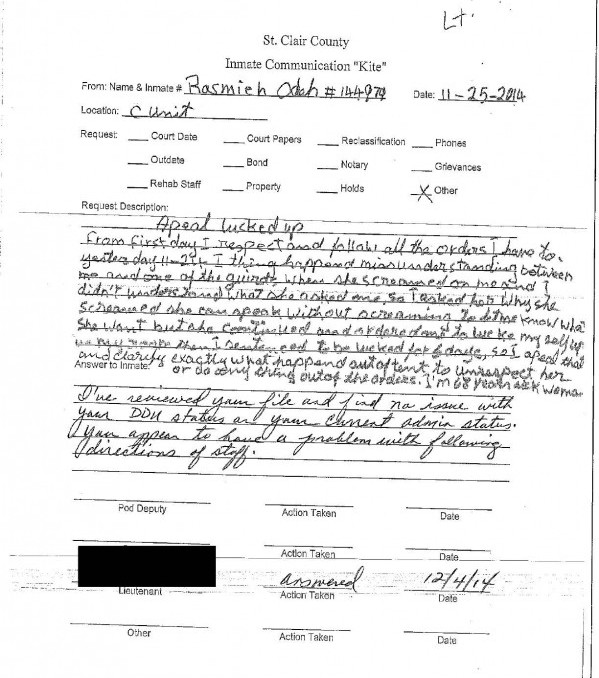 Lt.
St. Clair County
Inmate Communication "Kite"
From: Name & Inmate # Rasmieh Odeh # 144979 Date: 11-25-2014
Location: C Unit
Request: ___ Court Date ___ Court Papers ___ Reclassification ___ Phones
___ Outdate ___ Bond ___ Notary ___ Grievances
___ Rehab Staff ___ Property ___ Holds X Other
Request Description:
Apeal Lucked up
From first day I respect and follow all the orders I have to.
yesterday 11-24 I thing happend missunderstanding between
me and one of the guirds when she screamed on me and I
didn't understand what she asked me, so I asked her why she
screamed she can speak without screaming to let me know what
she want but she continued and ordered to lucke my self up
then I sentenced to be lucked for days, so I apeal that
and clarify exactly what happend out of tent to unrespect her
Answer to Inmate: or do any thing out of the orders. I'm 68 years sick woman
I've reviewed your file and find no issue with
your DDU status or your current admin status.
You appear to have a problem with following
directions of staff.
Pod Deputy Action Taken Date
Action Taken Date
answered 12/4/14
Lieutenant Action Taken Date
Other Action Taken Date